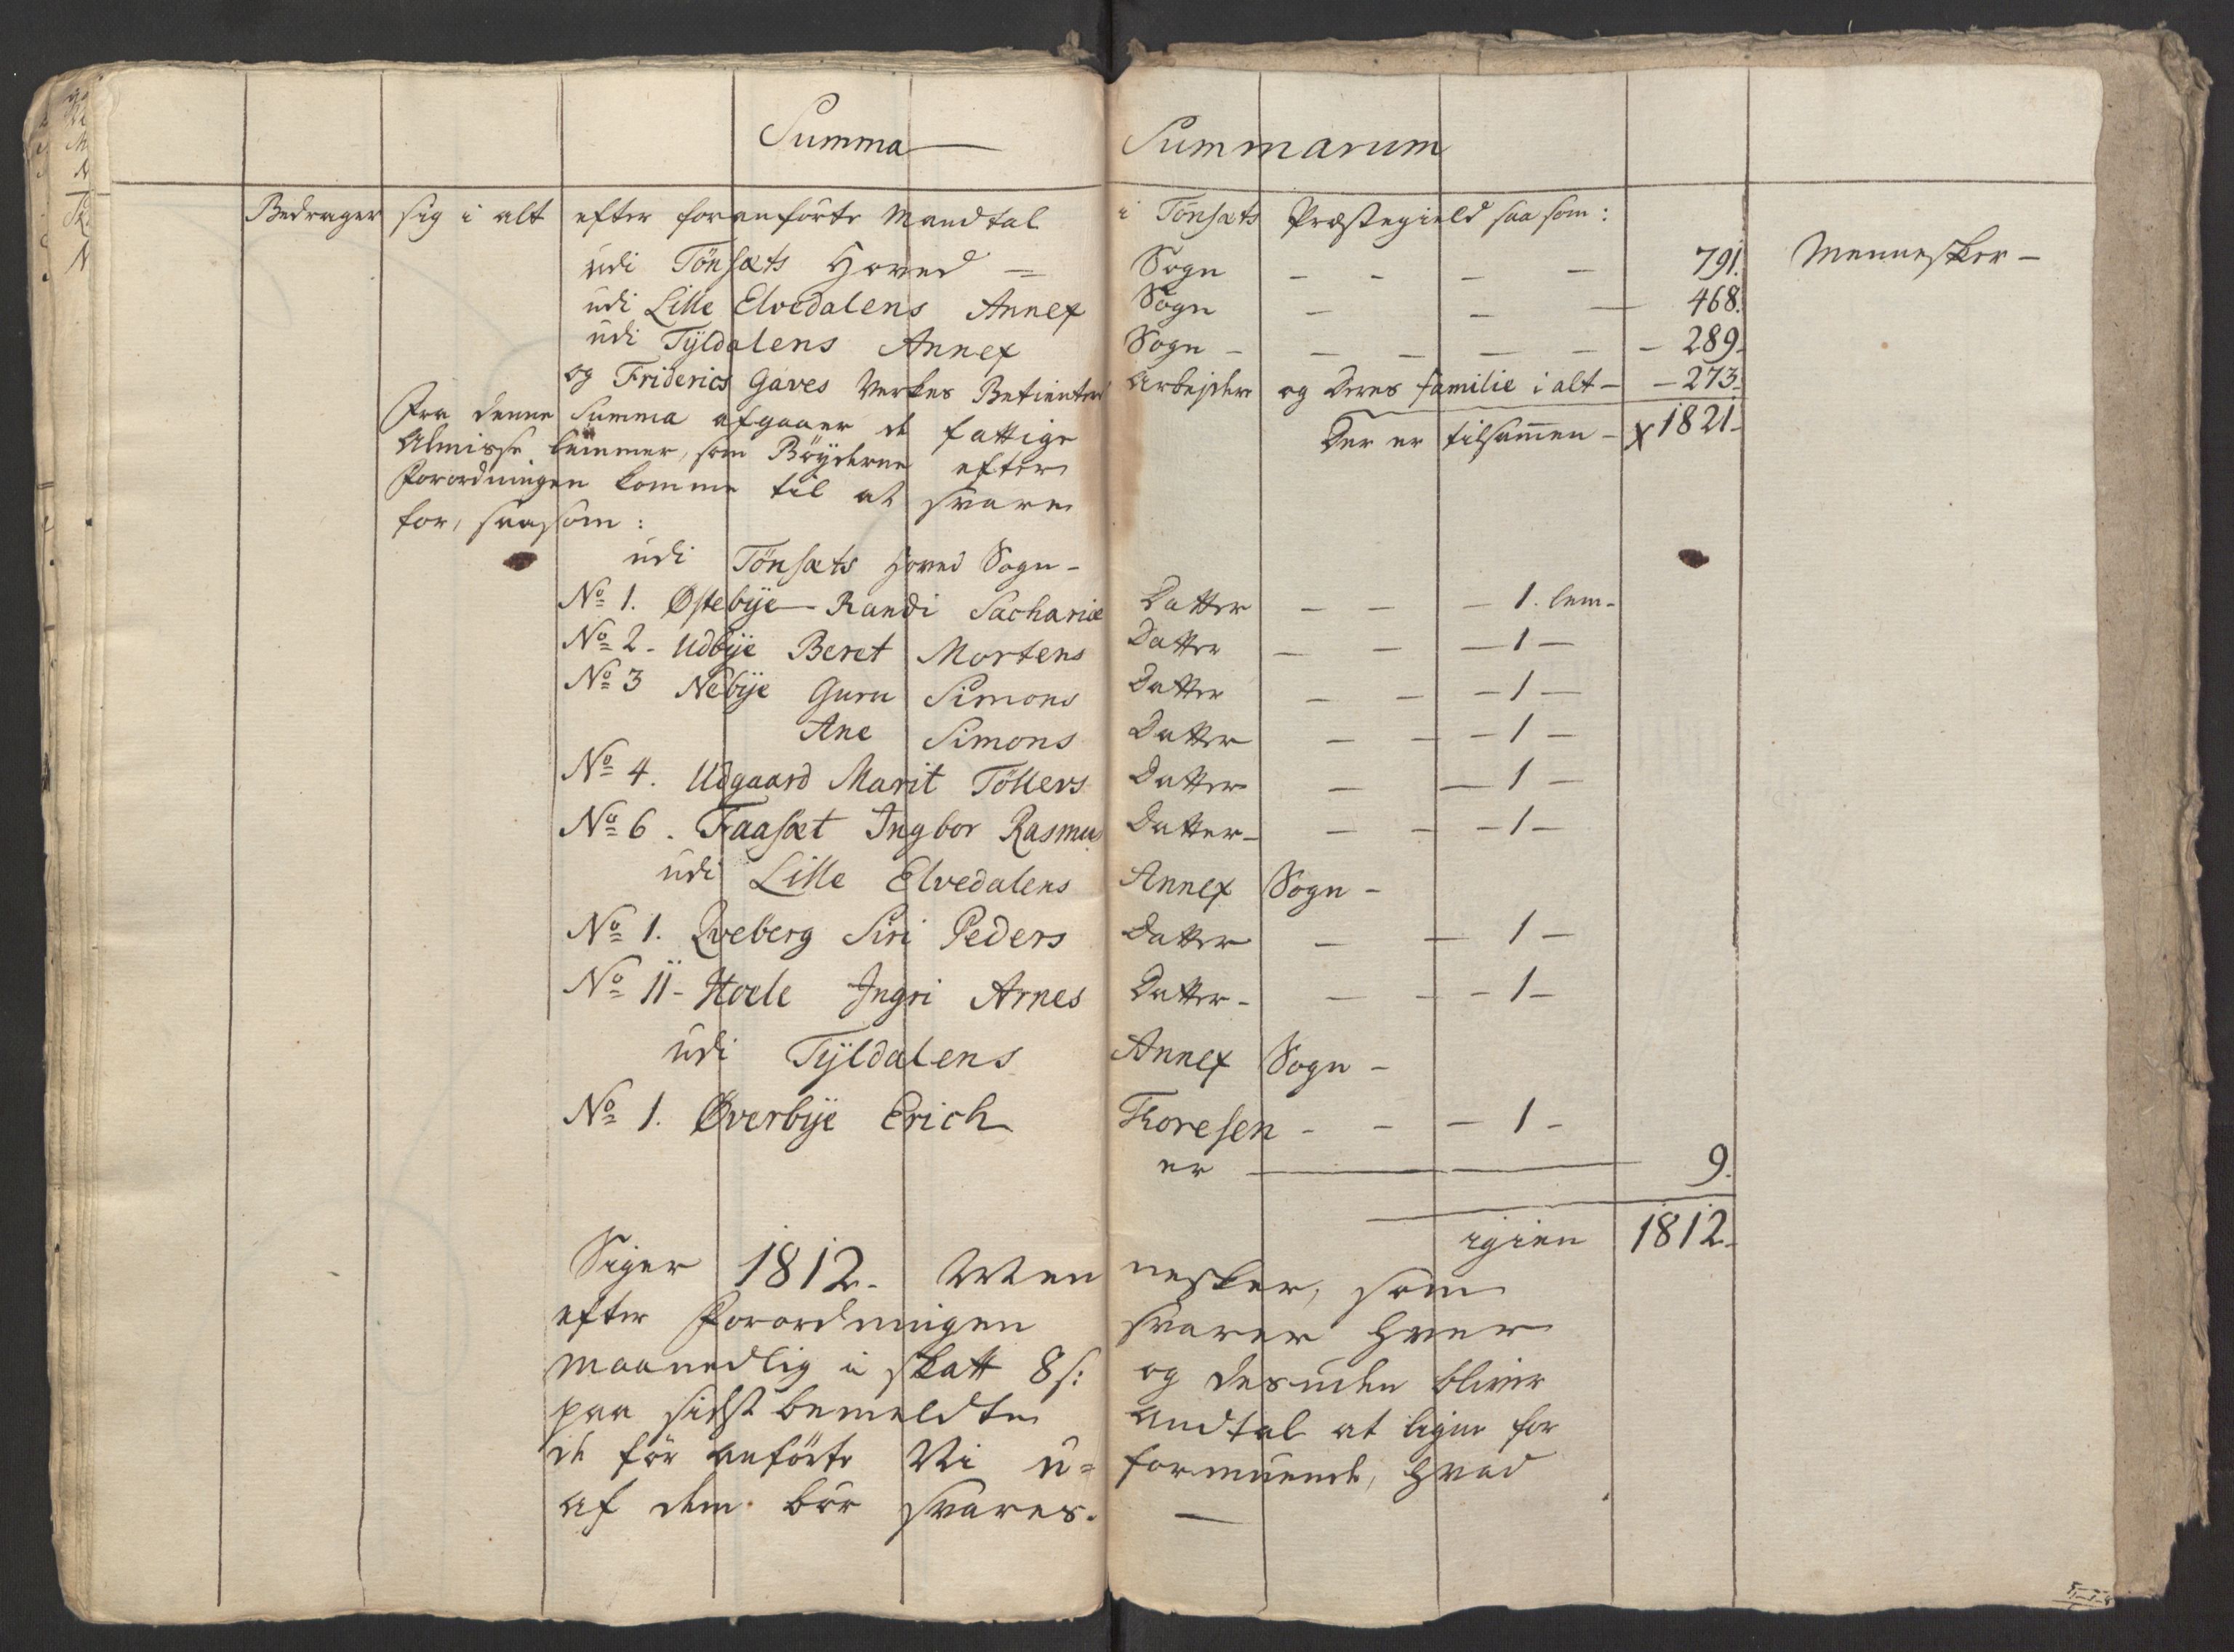 Summa Summarum
Bedrager sig i alt efter foranförte Mandtal i Tönsæts Præstegield saa som:
udi Tönsæts Hoved = Sogn - - - - 791. Mennesker -
udi Lille Elvedalens Annex Sogn - - - 468.
udi Tÿldalens Annex Sogn - - - - - - 289.
og Friderics Gaves Verkes Betienter Arbejdere og Deres familie i alt - - 273.
Fra denne Summa afgaaer de fattige Der er tilsammen - x 1821.
Almisse lemmer, som Bÿgderne efter
Forordningen komme til at svare
for, saasom:
udi Tönsæts Hoved Sogn -
No 1. Østebÿe - Randi Sachariæ Datter - - - 1. lem -
No 2 - Udbÿe Beret Mortens Datter - - - 1 -
No 3 Nebÿe Guru Simons Datter - - - 1 -
Ane Simons Datter - - - 1 -
No 4. Udgaard Marit Töllers Datter - - 1 -
No 6. Faasæt Ingbor Rasmus Datter - - - - 1 -
udi Lille Elvedalens Annex Sogn -
No 1. Qveberg Siri Peders Datter - - 1 -
No 11 - Hoele Ingri Arnes Datter - - - - 1 -
udi Tÿldalens Annex Sogn -
No 1. Øverbÿe Erich Thoresen - - - 1 -
er - - 9.
igien 1812.
Siger 1812. Mennesker, som
efter Forordningen svarer hver
maanedlig i skatt 8 s: og desuden bliver
paa sidst bemeldte Andtal at ligne for
de för anförte Ni u= formuende, hvad
af dem bör svares. -